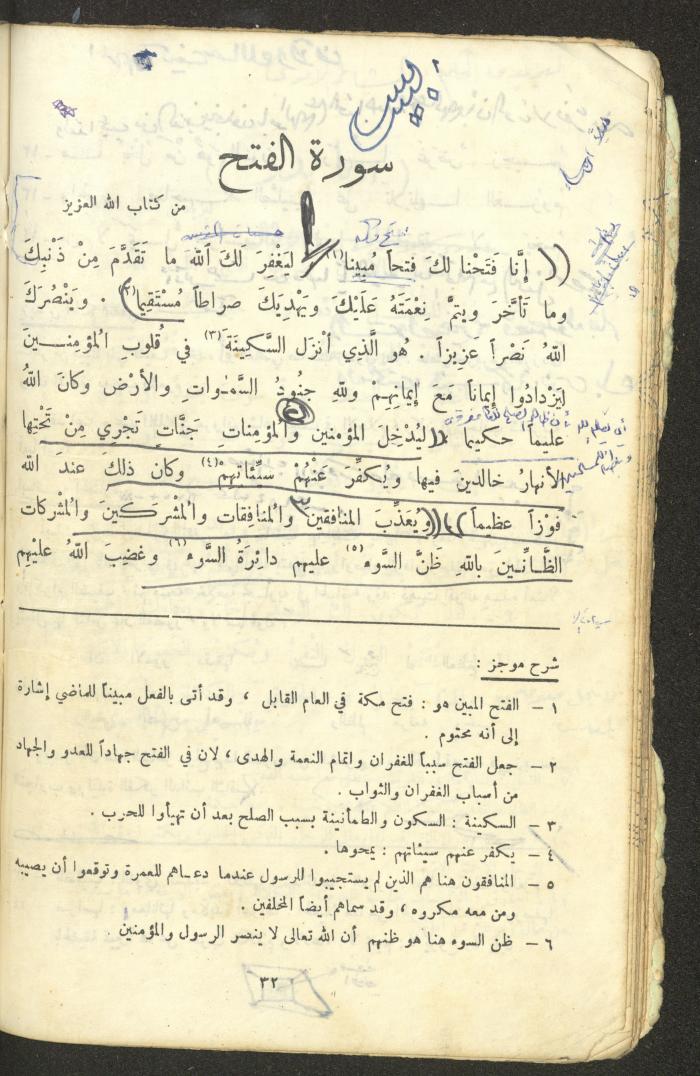 سورة الفتح
من كتاب الله العزيز
فتح مكه
(( إنَّا فَتَحْنا لكَ فَتحاً مُبِينا (١) لِيَغْفِرَ لَكَ ٱللهُ ما تَقَدَّمَ مِنْ ذَنْبِكَ
وما تَأَخَّرَ ويتمَّ نِعْمَتَهُ عَلَيْكَ ويَهْدِيَكَ صراطاً مُسْتَقِيما (٢) . ويَنْصُرَكَ
اللهُ نَصْراً عَزِيزاً . هُو الَّذِي أنْزلَ السَّكِينَةَ (٣) في قُلوبِ المُؤمِنــينَ
لِيَزْدادُوا إيماناً مَعَ إيمانِهِمْ وللهِ جنُودُ السَّمٰواتِ والأرْضِ وكانَ اللهُ
عليماً حكيما )) (( ليُدْخِلَ المؤمنين والمؤمِناتِ جَنَّاتٍ تَجْرِي مِنْ تَحْتِها
الأنهارُ خالدينَ فيها ويُكَفِّرَ عَنْهُمْ سيِّئاتِهِمْ (٤) وكانَ ذلكَ عندَ اللهِ
فَوْزاً عظيماً )) (( ويُعَذِّبَ المنافقينَ والمنافِقات والمُشْركـينَ والمُشْركات
الظَّـانِّـينَ باللهِ ظَنَّ السَّوءِ (٥) عليهم دائِرَةُ السَّوءِ (٦) وغضِبَ اللهُ عليْهِم
شرح موجز :
١ – الفتح المبين هو : فتح مكة في العام القابل ، وقد أتى بالفعل مبيناً للماضي إشارة
إلى أنه محتوم .
٢ – جعل الفتح سبباً للغفران واتمام النعمة والهدى ، لان في الفتح جهاداً للعدو والجهاد
من أسباب الغفران والثواب .
٣ – السكينة : السكون والطمأنينة بسبب الصلح بعد أن تهيأوا للحرب .
٤ – يكفر عنهم سيئاتهم : يمحوها .
٥ – المنافقون هنا هم الذين لم يستجيبوا للرسول عندما دعـاهم للعمرة وتوقعوا أن يصيبه
ومن معه مكروه ، وقد سماهم أيضاً المخلفين .
٦ – ظن السوء هنا هو ظنهم أن الله تعالى لا ينصر الرسول والمؤمنين .
٣٢